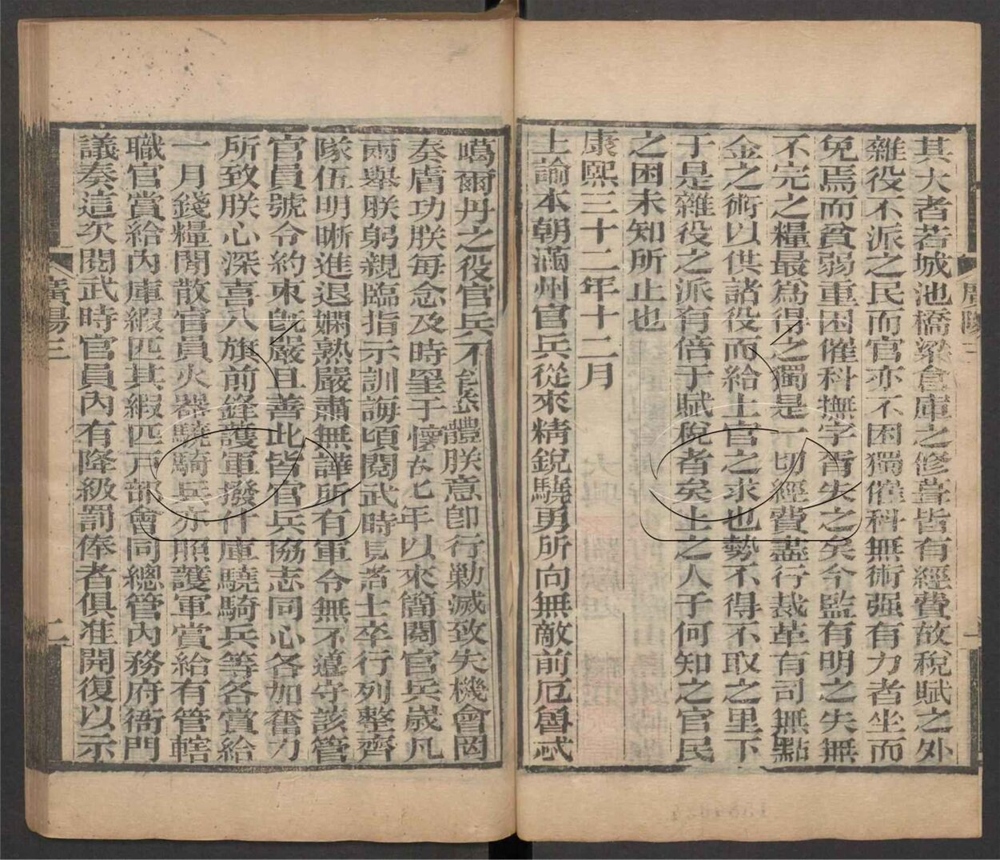 其大者若城池橋梁倉庫之修葺皆有經費故稅賦之外
雜役不派之民而官亦不困獨催科無術强有力者坐而
免焉而貧弱重困催科撫字胥失之矣今監有明之失無
不完之糧最爲得之獨是一切經費盡行裁革有司無點
金之術以供諸役而給上官之求也勢不得不取之里下
于是雜役之派有倍于賦稅者矣止之人子何知之官民
之困未知所止也
康熙三十二年十二月
上諭本朝滿州官兵從來精銳驍勇所向無敵前厄魯忒
噶爾丹之役官兵不能體朕意卽行勦滅致失機會罔
奏膚功朕每念及時塁于懷年以來簡閱官兵歲凡
兩舉朕躬親臨指示訓誨頃閱武時見士卒行列整齊
隊伍明晰進退嫻熟嚴肅無譁所有軍令無不遵守該管
官員號令約束旣嚴且善此皆官兵協志同心各加奮力
所致朕心深喜八旗前鋒護軍撥什庫驍騎兵等各賞給
一月錢糧閒散官員火器驍騎兵亦照護軍賞給有管轄
職官賞給內庫緞匹其緞匹戸部會同總管內務府衙門
議奏這次閱武時官員內有降級罰俸者俱准開復以示
廣陽三
二